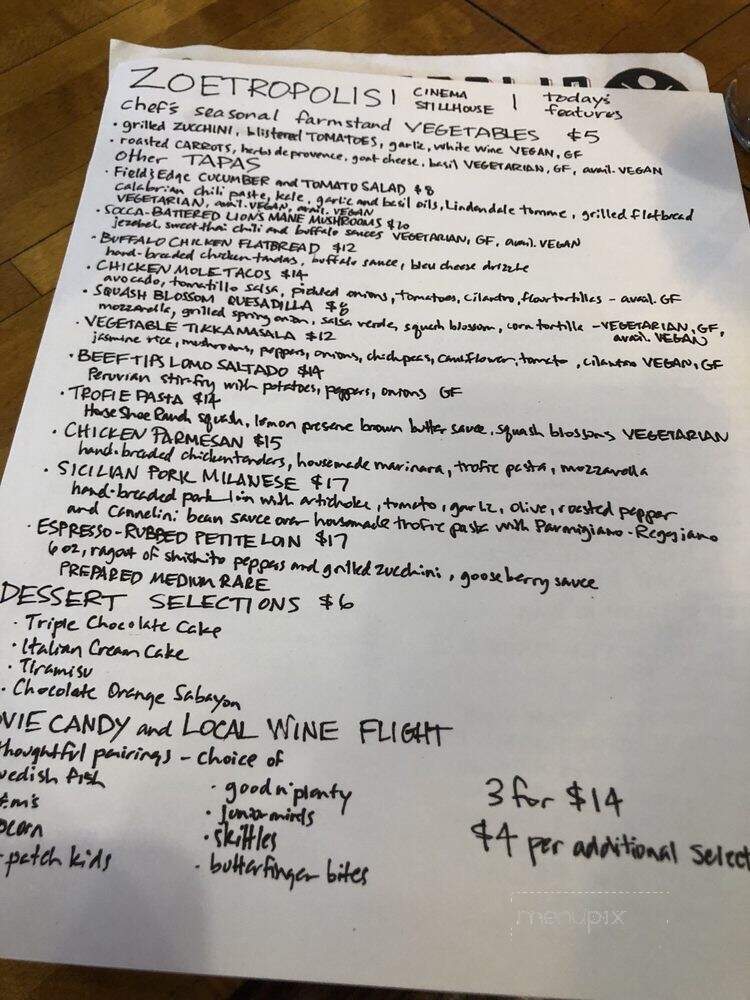 ZOETROPOLIS | CINEMA STILLHOUSE | today's features
chef's seasonal farmstand VEGETABLES $5
· grilled ZUCCHINI, blistered TOMATOES, garlic, white wine VEGAN, GF
· roasted CARROTS, herbs de provence, goat cheese, basil VEGETARIAN, GF, avail. VEGAN
other TAPAS
· Field's Edge CUCUMBER and TOMATO SALAD $8
Calabrian chili paste, kale, garlic and basil oils, Lindendale tomme, grilled flatbread
VEGETARIAN, avail. VEGAN, avail. VEGAN
· SOCCA-BATTERED LION'S MANE MUSHROOMS $10
jezebel, sweet thai chili and buffalo sauces VEGETARIAN, GF, avail. VEGAN
· BUFFALO CHICKEN FLATBREAD $12
hand-breaded chicken tendas, buffalo sauce, bleu cheese drizzle
· CHICKEN MOLE TACOS $14
avocado, tomatillo salsa, pickled onions, tomatoes, cilantro, flour tortillas - avail. GF
· SQUASH BLOSSOM QUESADILLA $8
mozzarella, grilled spring onion, salsa verde, squash blossom, corn tortilla - VEGETARIAN, GF,
avail. VEGAN
· VEGETABLE TIKKA MASALA $12
jasmine rice, mushrooms, peppers, onions, chickpeas, cauliflower, tomato, cilantro VEGAN, GF
· BEEF TIPS LOMO SALTADO $14
Peruvian stir-fry with potatoes, peppers, onions GF
· TROFIE PASTA $14
Horse Shoe Ranch squash, lemon preserve brown butter sauce, squash blossoms VEGETARIAN
· CHICKEN PARMESAN $15
hand-breaded chicken tenders, housemade marinara, trofie pasta, mozzarella
· SICILIAN PORK MILANESE $17
hand-breaded pork loin with artichoke, tomato, garlic, olive, roasted pepper
and cannelini bean sauce over housmade trofie pasta with Parmigiano-Reggiano
· ESPRESSO-RUBBED PETITE LOIN $17
6 oz, ragout of shishito peppers and grilled zucchini, gooseberry sauce
PREPARED MEDIUM RARE
DESSERT SELECTIONS $6
· Triple Chocolate Cake
· Italian Cream Cake
· Tiramisu
· Chocolate Orange Sabayon
OVIE CANDY and LOCAL WINE FLIGHT
thoughtful pairings - choice of
wedish fish
&m's
pcorn
patch kids
· good n' plenty
· junior mints
· skittles
· butterfinger bites
3 for $14
$4 per additional select
menupix